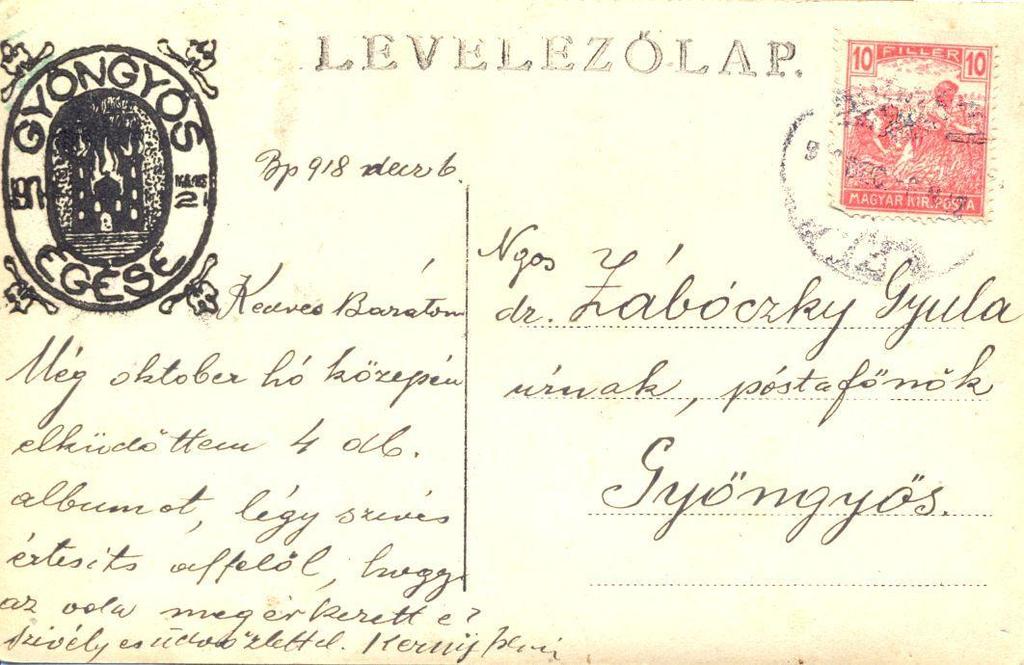 LEVELEZŐLAP.
GYÖNGYÖS
1917 MÁJUS 21
ÉGÉSE
10 FILLÉR 10
MAGYAR KIR. POSTA
Bp 918 decz 6.
Kedves Barátom
Még oktober hó közepén
elküdöttem 4 db.
albumot, légy szives
értesits affelől, hogy
az oda megérkezett e?
Szivélyes üdvözlettel.
Ngos
dr. Zábóczky Gyula
úrnak, póstafőnök
Gyöngyös.